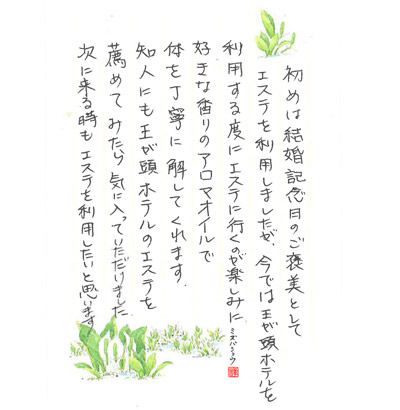 初めは結婚記念日のご褒美として
エステを利用しましたが、今では王が頭ホテルを
利用する度にエステに行くのが楽しみに
好きな香りのアロマオイルで
体を丁寧に解してくれます。
知人にも王が頭ホテルのエステを
薦めてみたら気に入っていただけました
次に来る時もエステを利用したいと思います
ミズバショウ